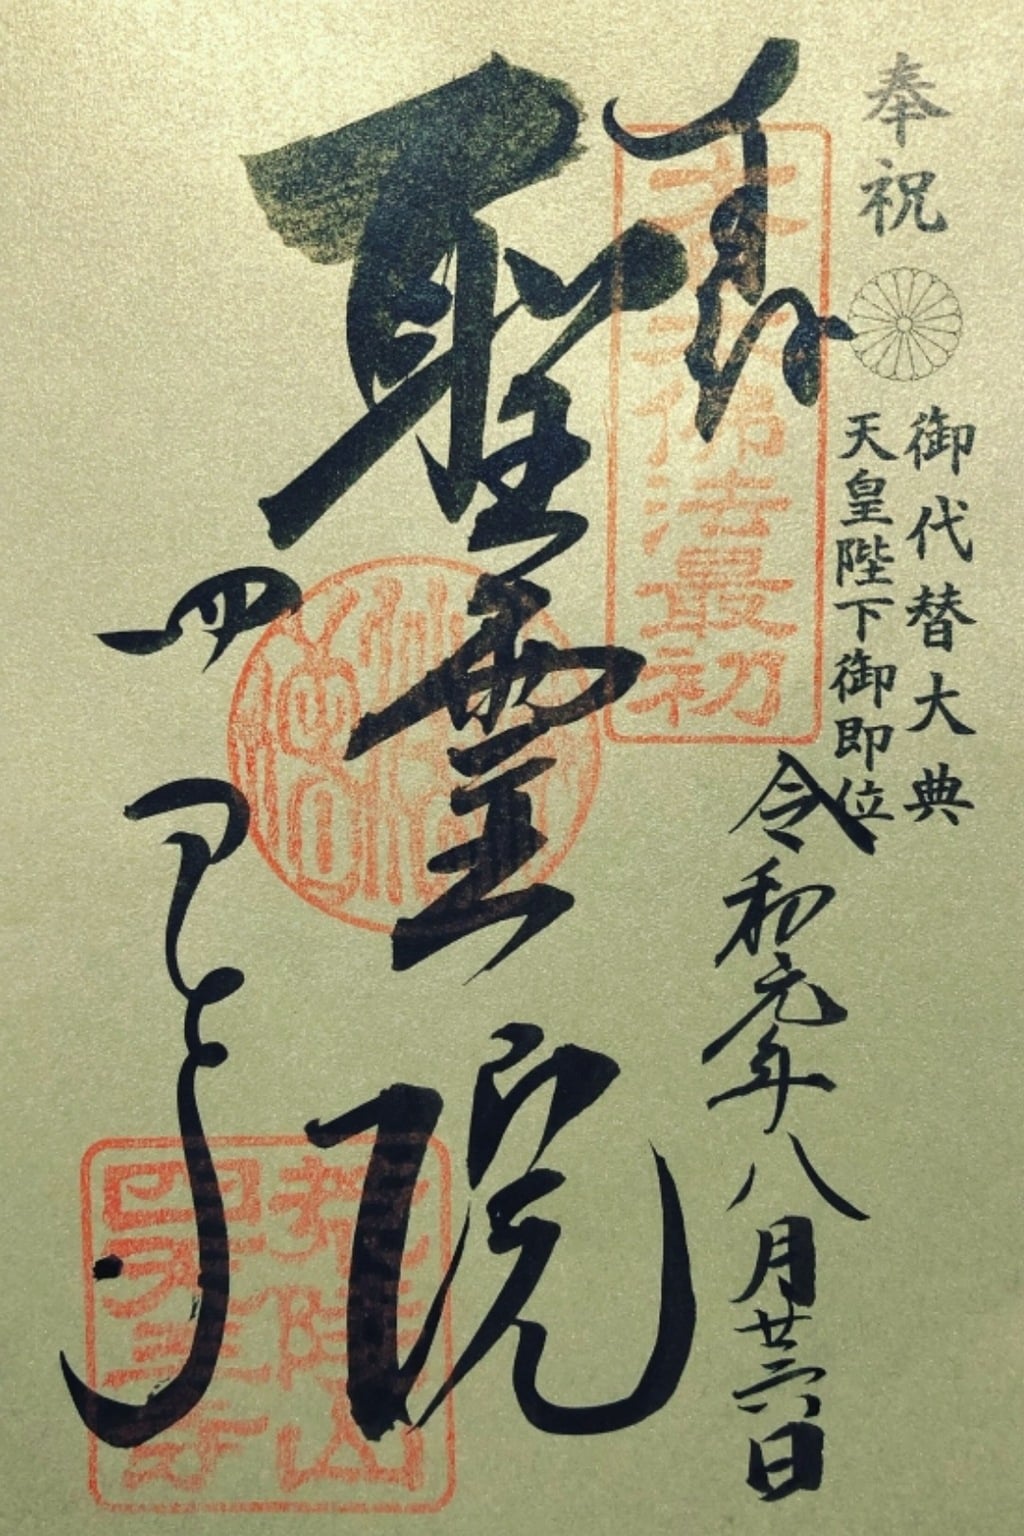 奉祝
御代替大典
天皇陛下御即位
奉拝
令和元年八月廿六日
本朝佛法最初
聖霊院
四天王寺
荒陵山
四天王寺